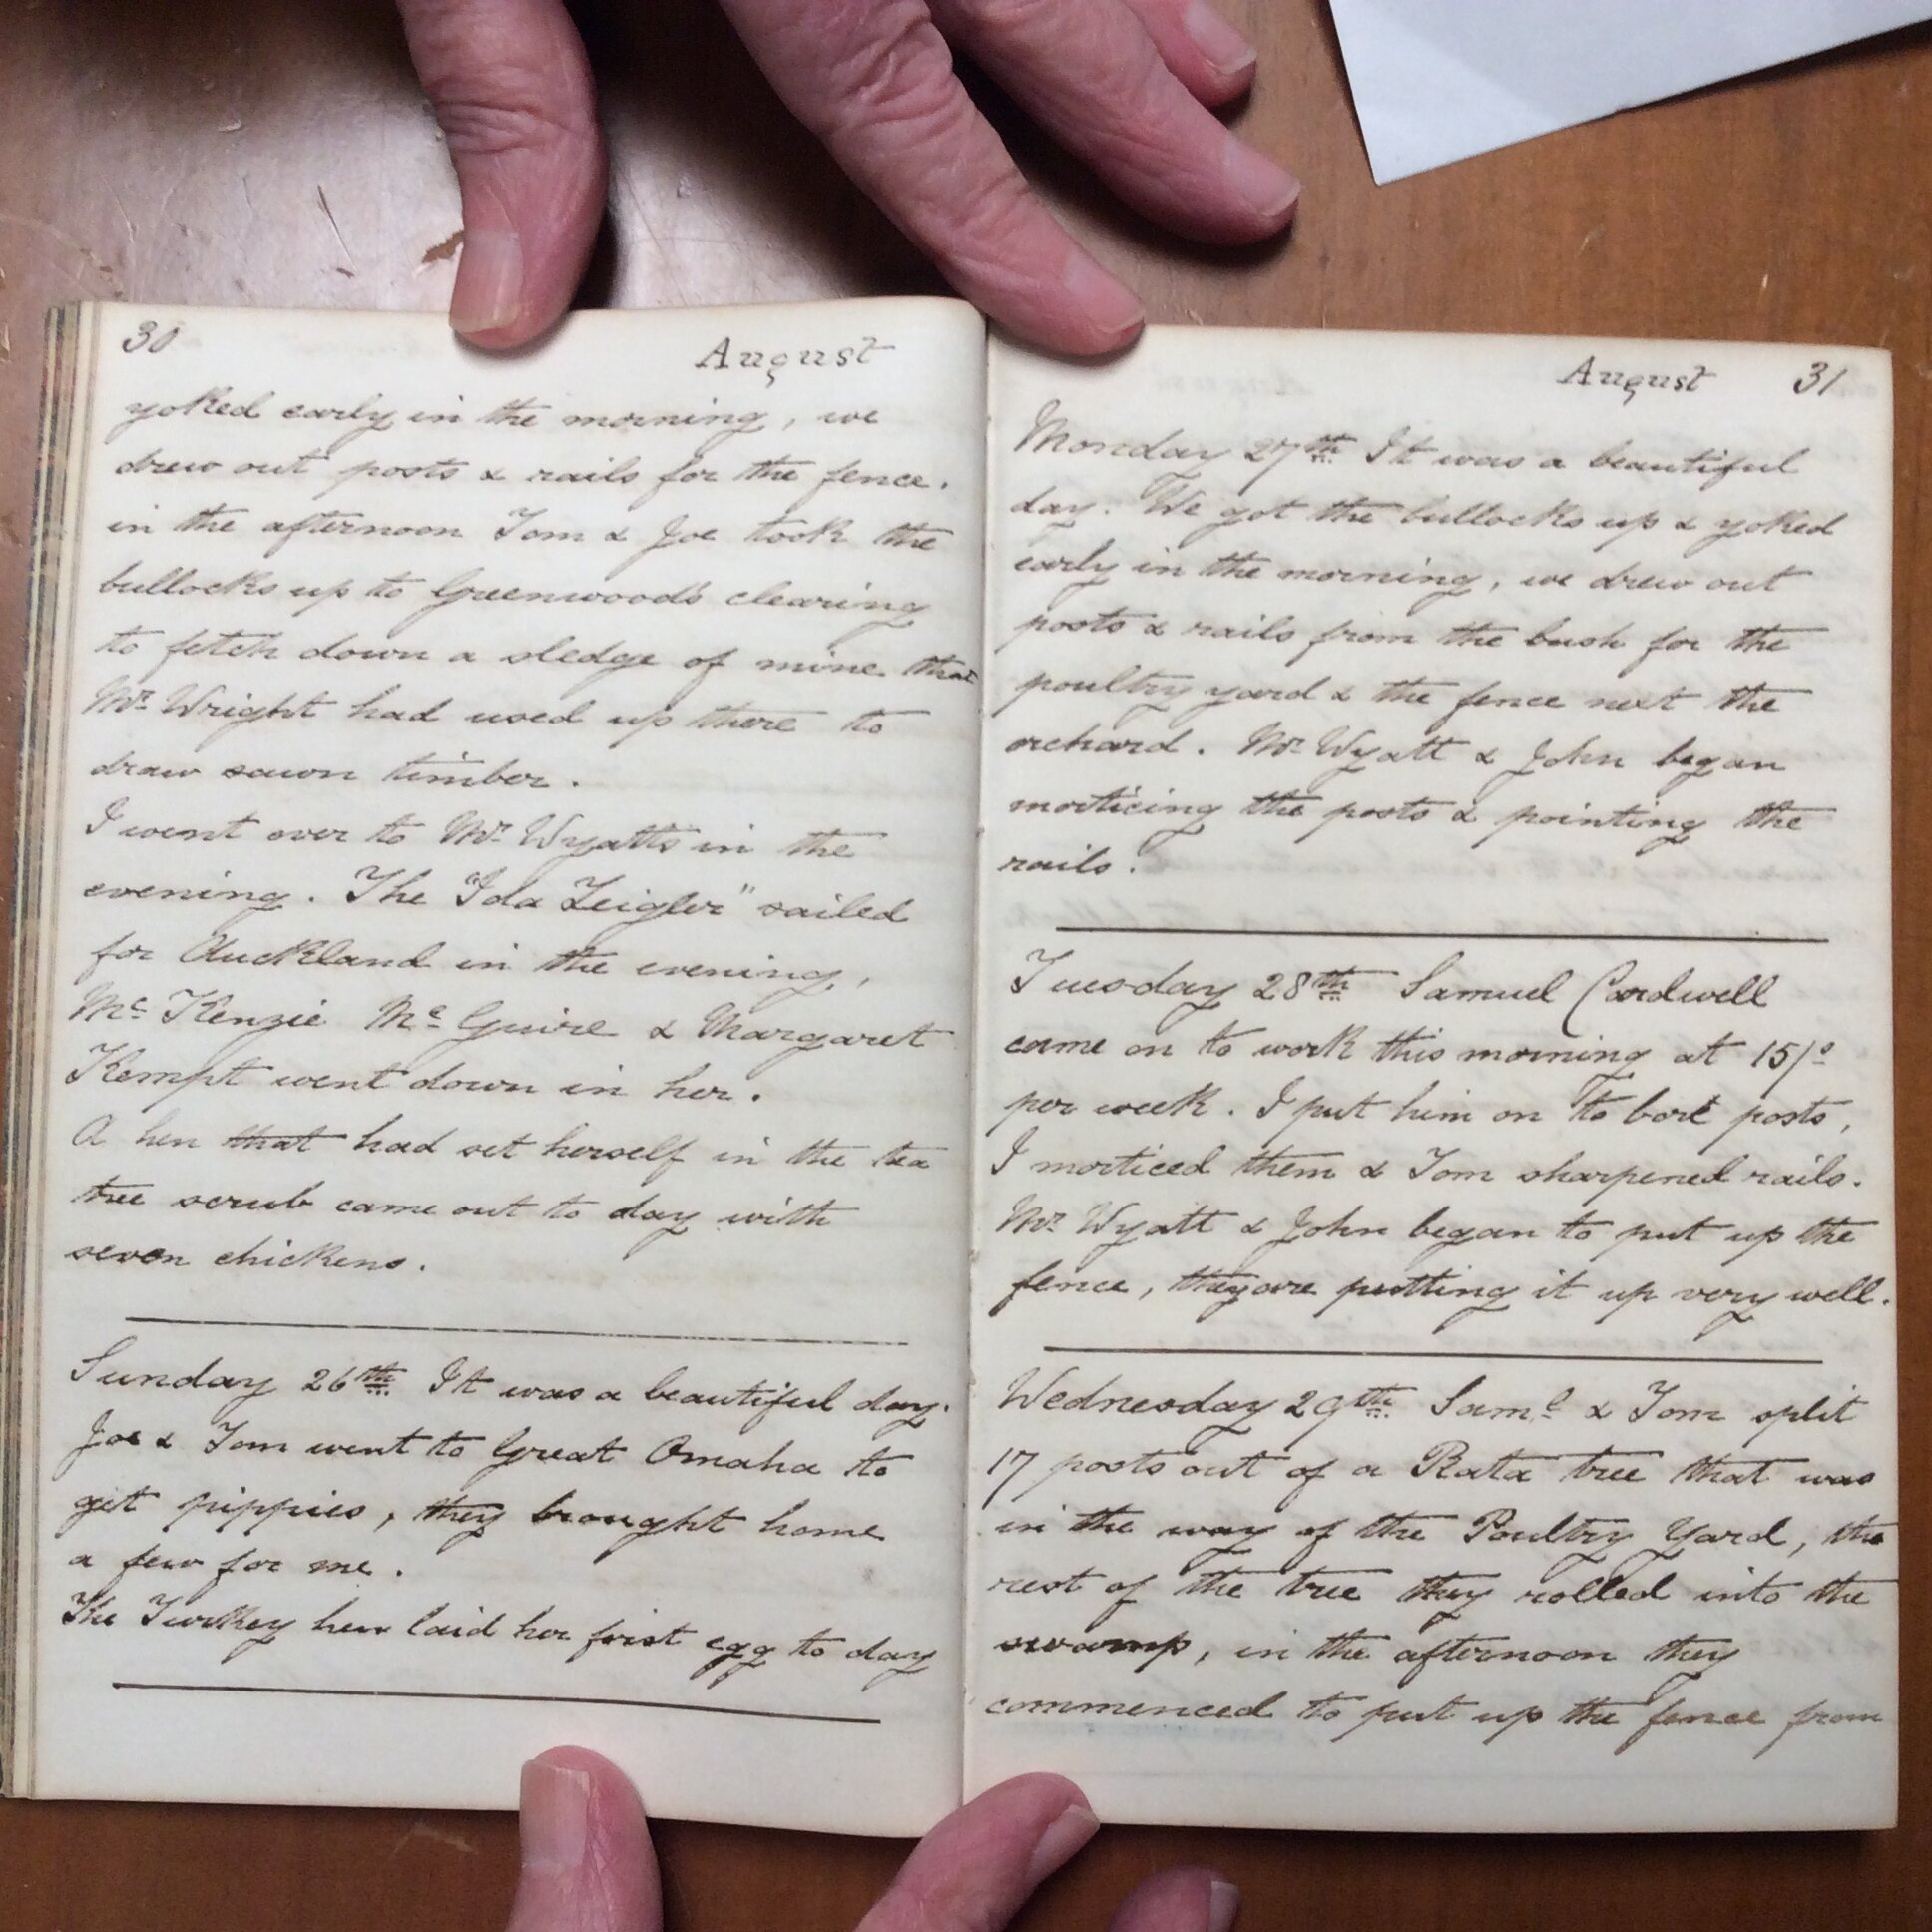 30
August
yoked early in the morning, we
drew out posts & rails for the fence.
in the afternoon Tom & Joe took the
bullocks up to Greenwoods clearing
to fetch down a sledge of mine that
Mr. Wright had used up there to
draw sawn timber.
I went over to Mr. Wyatts in the
evening. The "Ida Zeigler" sailed
for Auckland in the evening,
Mc. Kenzie Mc. Guire & Margaret
Kempt went down in her.
A hen that had set herself in the tea
tree scrub came out to day with
seven chickens.
Sunday 26th It was a beautiful day.
Joe & Tom went to Great Omaha to
get pippies, they brought home
a few for me.
The Turkey hen laid her first egg to day
August 31
Monday 27th It was a beautiful
day. We got the bullocks up & yoked
early in the morning, we drew out
posts & rails from the bush for the
poultry yard & the fence next the
orchard. Mr. Wyatt & John began
morticing the posts & pointing the
rails.
Tuesday 28th Samuel Cardwell
came on to work this morning at 15/s
per week. I put him on to bore posts,
I morticed them & Tom sharpened rails.
Mr. Wyatt & John began to put up the
fence, they are putting it up very well.
Wednesday 29th Saml & Tom split
17 posts out of a Rata tree that was
in the way of the Poultry Yard, the
rest of the tree they rolled into the
swamp, in the afternoon they
commenced to put up the fence from